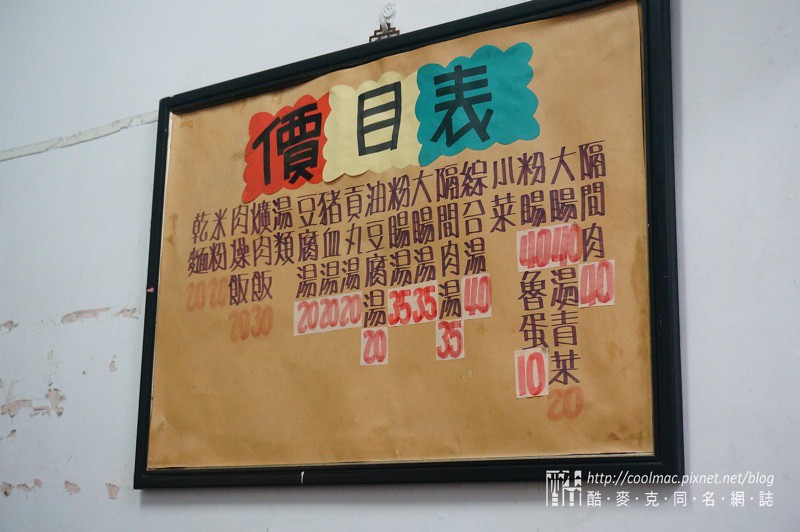 價目表
乾麵20
米粉20
肉燥飯20
爌肉飯30
湯類
豆腐湯20
豬血湯20
貢丸湯20
油豆腐湯20
粉腸湯35
大腸湯35
隔間肉湯35
綜合湯40
小菜
粉腸40
魯蛋10
大腸40
湯青菜20
隔間肉40
http://coolmac.pixnet.net/blog
酷·麥·克·同·名·網·誌